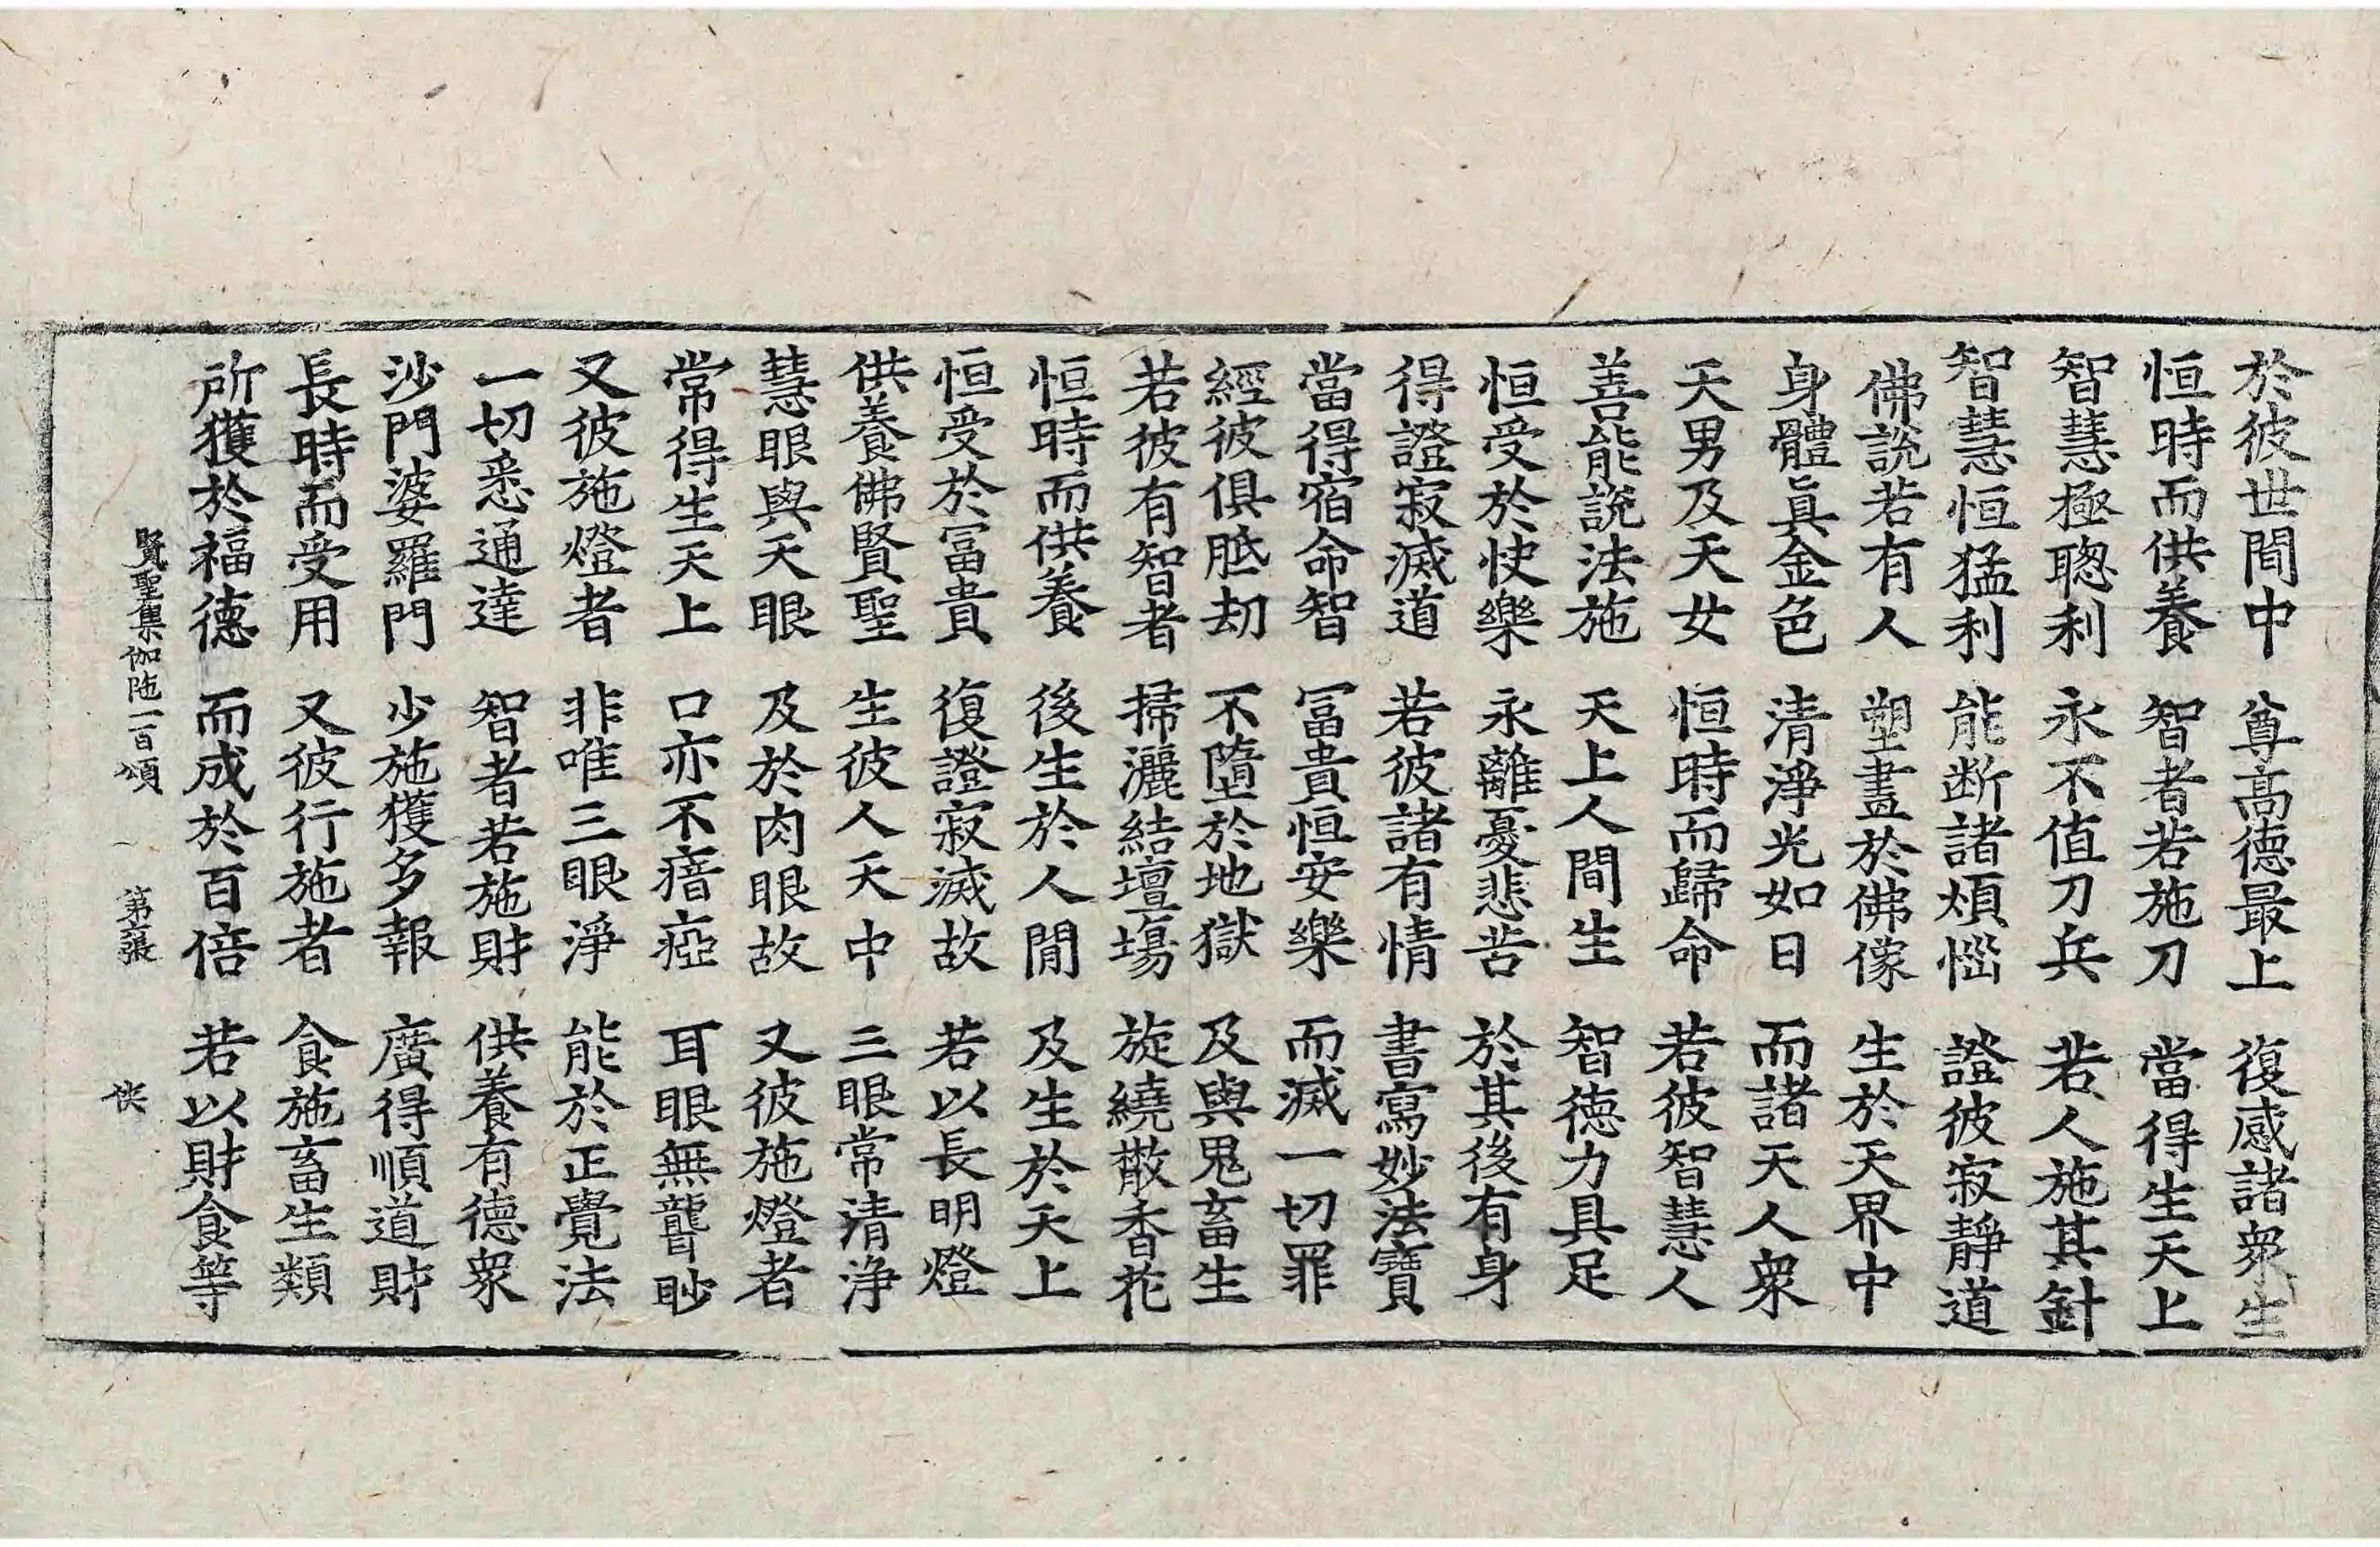 於彼世間中 尊高德最上 復感諸衆生
恒時而供養 智者若施刀 當得生天上
智慧極聦利 永不值刀兵 若人施其針
智慧恒猛利 能断諸煩惱 證彼寂靜道
佛說若有人 塑畫於佛像 生於天界中
身體真金色 清淨光如日 而諸天人衆
天男及天女 恒時而歸命 若彼智慧人
善能說法施 天上人間生 智德力具足
恒受於快樂 永離憂悲苦 於其後有身
得證寂滅道 若彼諸有情 書寫妙法寶
當得宿命智 冨貴恒安樂 而滅一切罪
經彼俱胝劫 不墮於地獄 及與鬼畜生
若彼有智者 掃灑結壇場 旋繞散香花
恒時而供養 後生於人間 及生於天上
恒受於冨貴 復證寂滅故 若以長明燈
供養佛賢聖 生彼人天中 三眼常清淨
慧眼與天眼 及於肉眼故 又彼施燈者
常得生天上 口亦不瘖瘂 耳眼無聾眇
又彼施燈者 非唯三眼淨 能於正覺法
一切悉通達 智者若施財 供養有德衆
沙門婆羅門 少施獲多報 廣得順道財
長時而受用 又彼行施者 食施畜生類
所獲於福德 而成於百倍 若以財食等
賢聖集伽陁一百頌 第六張 俠